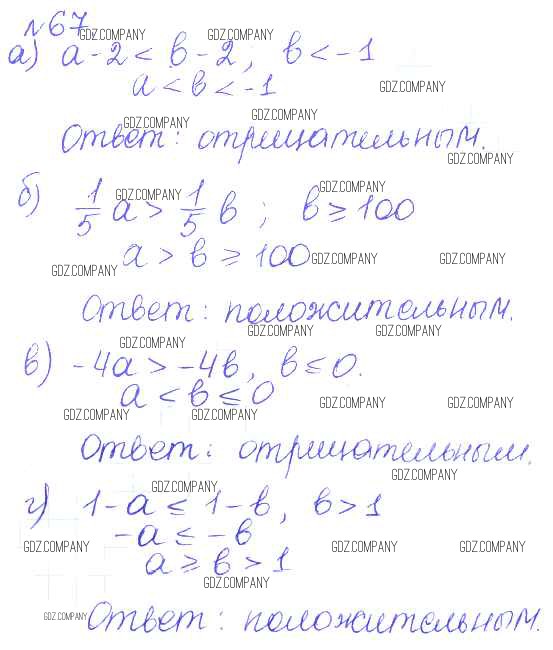 №67
GDZ.COMPANY GDZ.COMPANY
а) a - 2 < b - 2, b < -1
a < b < -1
GDZ.COMPANY
GDZ.COMPANY GDZ.COMPANY
Ответ: отрицательным.
GDZ.COMPANY
GDZ.COMPANY GDZ.COMPANY
б) 1/5 a > 1/5 b; b ≥ 100
a > b ≥ 100
GDZ.COMPANY GDZ.COMPANY GDZ.COMPANY
Ответ: положительным.
GDZ.COMPANY GDZ.COMPANY GDZ.COMPANY
в) -4a > -4b, b ≤ 0.
a < b ≤ 0
GDZ.COMPANY GDZ.COMPANY
GDZ.COMPANY GDZ.COMPANY
Ответ: отрицательным.
GDZ.COMPANY
GDZ.COMPANY
г) 1 - a ≤ 1 - b, b > 1
-a ≤ -b
GDZ.COMPANY GDZ.COMPANY GDZ.COMPANY
a ≥ b > 1
GDZ.COMPANY
GDZ.COMPANY
Ответ: положительным.